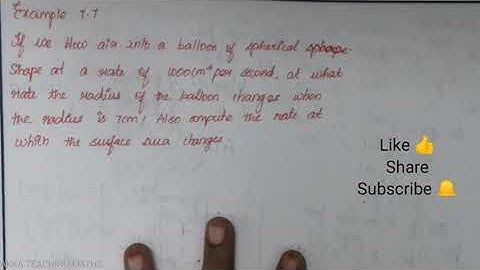 Example 7.7
If we blow air into a balloon of spherical
Shape at a rate of 1000cm³ per second, at what
rate the radius of the balloon changes when
the radius is 7cm? Also compute the rate at
which the surface area changes.
Like 👍
Share
Subscribe 🔔
TEACHING MATHS